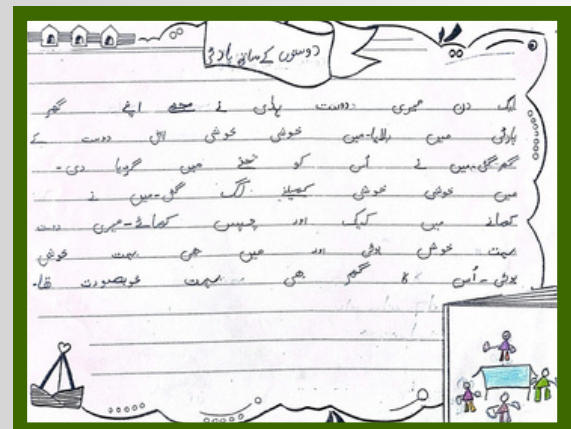 دوستوں کے ساتھ پارٹی
ایک دن میری دوست نے مجھے اپنے گھر
پارٹی میں بلایا۔میں خوشی خوشی دوست کے
گھر گئی۔میں نے اُس کو تحفے میں گڑیا دی۔
میں خوشی خوشی کھیلنے لگ گئی۔میں نے
کھانے میں کیک اور چپس کھائے۔میری دوست
بہت خوش ہوئی اور میں بھی بہت خوش
ہوئی۔اُس کا گھر بھی بہت خوبصورت تھا۔